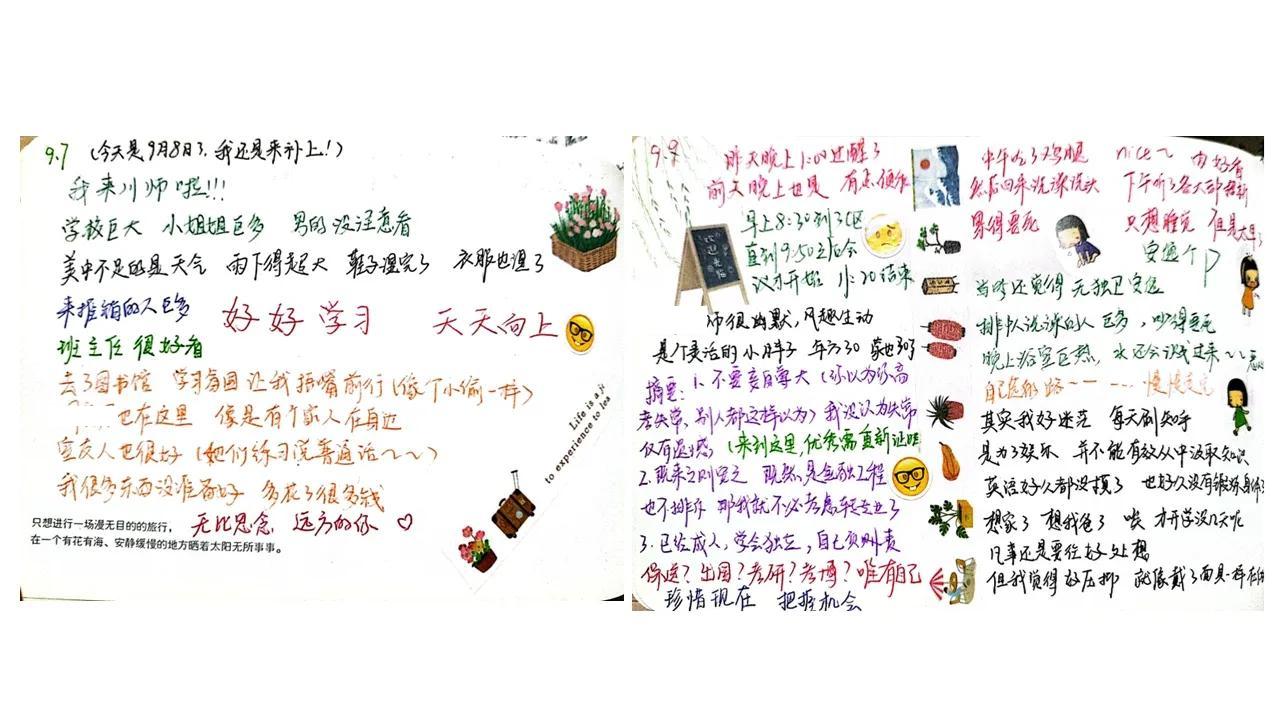 9.7 (今天是9月8日了,我还是来补上!)
我来川师啦!!!
学校巨大 小姐姐巨多 男的没注意看
美中不足的是天气 雨下得超大 鞋子湿完了 衣服也湿了
来推销的人巨多
好好学习 天天向上
班主任很好看
去了图书馆 学习氛围让我捂嘴前行(像个小偷一样)
也在这里 像是有个家人在身边
室友人也很好(她们练习说普通话~~)
我很多东西没准备好 多花了很多钱
无比思念 远方的你 ♡
只想进行一场漫无目的的旅行,
在一个有花有海、安静缓慢的地方晒着太阳无所事事。
Life is a j
to experience to lea
9.9
昨天晚上1:00过醒了
前天晚上也是 有点
早上8:30到
直到9:50
议才开始 11:20结束
欢迎光临
师很幽默,风趣生动
是个灵活的小胖子 年方30
摘要: 1.不要妄自尊大(你以为你高
考失常,别人都这样以为)我没认为失常
仅有遗憾 (来到这里,优秀需重新证明
2.既来之则安之 既然是金融工程
也不排斥 那我就不必考虑转专业了
3.已经成人,学会独立,自己负则责
保送?出国?考研?考博?唯有自己
珍惜现在 把握机会
中午吃了鸡腿 nice~ 肉好香
然后回来洗澡洗头 下午听了各大部招新
累得要死 只想睡觉 但是太早了
安逸个P
当时还觉得 无独卫安逸
排队洗澡的人巨多,吵得要死
晚上浴室巨热,
自己选的路 ~ — ---- 慢慢走完
其实我好迷茫 每天刷知乎
是为了娱乐 并不能有效从中汲取知识
英语好久都没摸了 也好久没有锻炼身体了
想家了 想我爸了 唉 才开学没几天呢
凡事还是要往好处想
但我觉得好压抑 就像戴了面具一样在